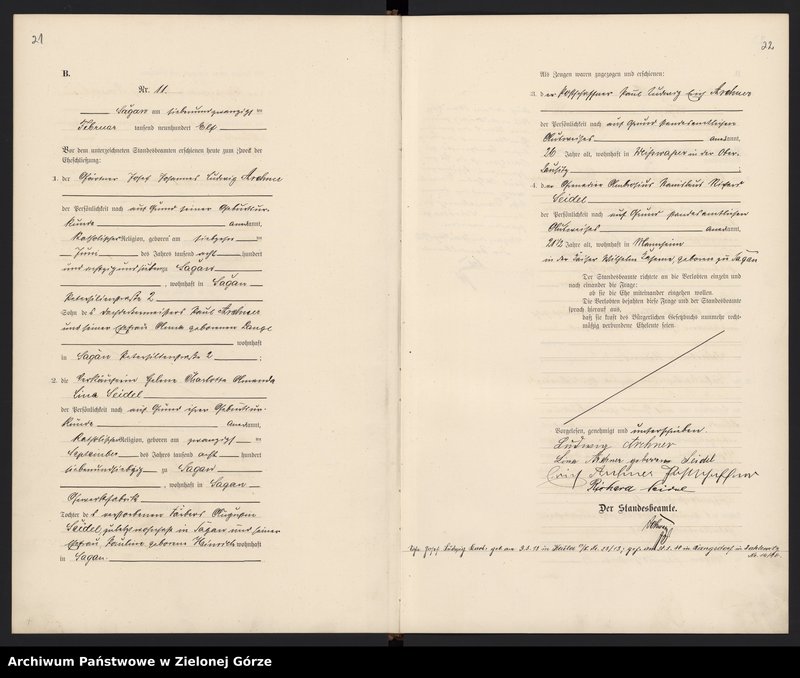 21
B.
Nr. 11.
Sagan am siebenundzwanzigsten
Februar tausend neunhundert Elf
Vor dem unterzeichneten Standesbeamten erschienen heute zum Zweck der
Eheschließung:
1. der Gärtner Josef Johannes Ludwig
der Persönlichkeit nach auf Grund seiner Geburtsur-
kunde anerkannt,
katholischer Religion, geboren am siebzehnten
Juni des Jahres tausend acht hundert
und achtzig und sieben zu Sagan
, wohnhaft in Sagan
Petersilienstraße 2
Sohn des Paul
und seiner Ehefrau geborenen
wohnhaft
in Sagan Petersilienstraße 2 ;
2. die Verkäuferin Helene Charlotte Amanda
Lina Seidel
der Persönlichkeit nach auf Grund ihrer Geburtsur-
kunde anerkannt,
katholischer Religion, geboren am zwanzigsten
September des Jahres tausend acht hundert
siebenundachtzig zu Sagan
, wohnhaft in Sagan
Tochter des verstorbenen August
Seidel zuletzt wohnhaft in Sagan und seiner
Ehefrau Pauline geborene Heinrich wohnhaft
in Sagan.
22
Als Zeugen waren zugezogen und erschienen:
3. der Postschaffner Paul Ludwig Erich
der Persönlichkeit nach auf Grund standesamtlichen
Ausweises anerkannt,
26 Jahre alt, wohnhaft in Weißwasser in der Ober-
lausitz ;
4. der Grenadier Ambrosius Richard
Seidel
der Persönlichkeit nach auf Grund standesamtlichen
Ausweises anerkannt,
21 1/2 Jahre alt, wohnhaft in Mannheim
in der Kaiser Wilhelm Kaserne, geboren zu Sagan
Der Standesbeamte richtete an die Verlobten einzeln und
nach einander die Frage:
ob sie die Ehe miteinander eingehen wollen.
Die Verlobten bejahten diese Frage und der Standesbeamte
sprach hierauf aus,
daß sie kraft des Bürgerlichen Gesetzbuchs nunmehr recht-
mäßig verbundene Eheleute seien.
Vorgelesen, genehmigt und unterschrieben.
Ludwig
Lina geborene Seidel
Erich Postschaffner
Richard Seidel
Der Standesbeamte.
Archiwum Państwowe w Zielonej Górze